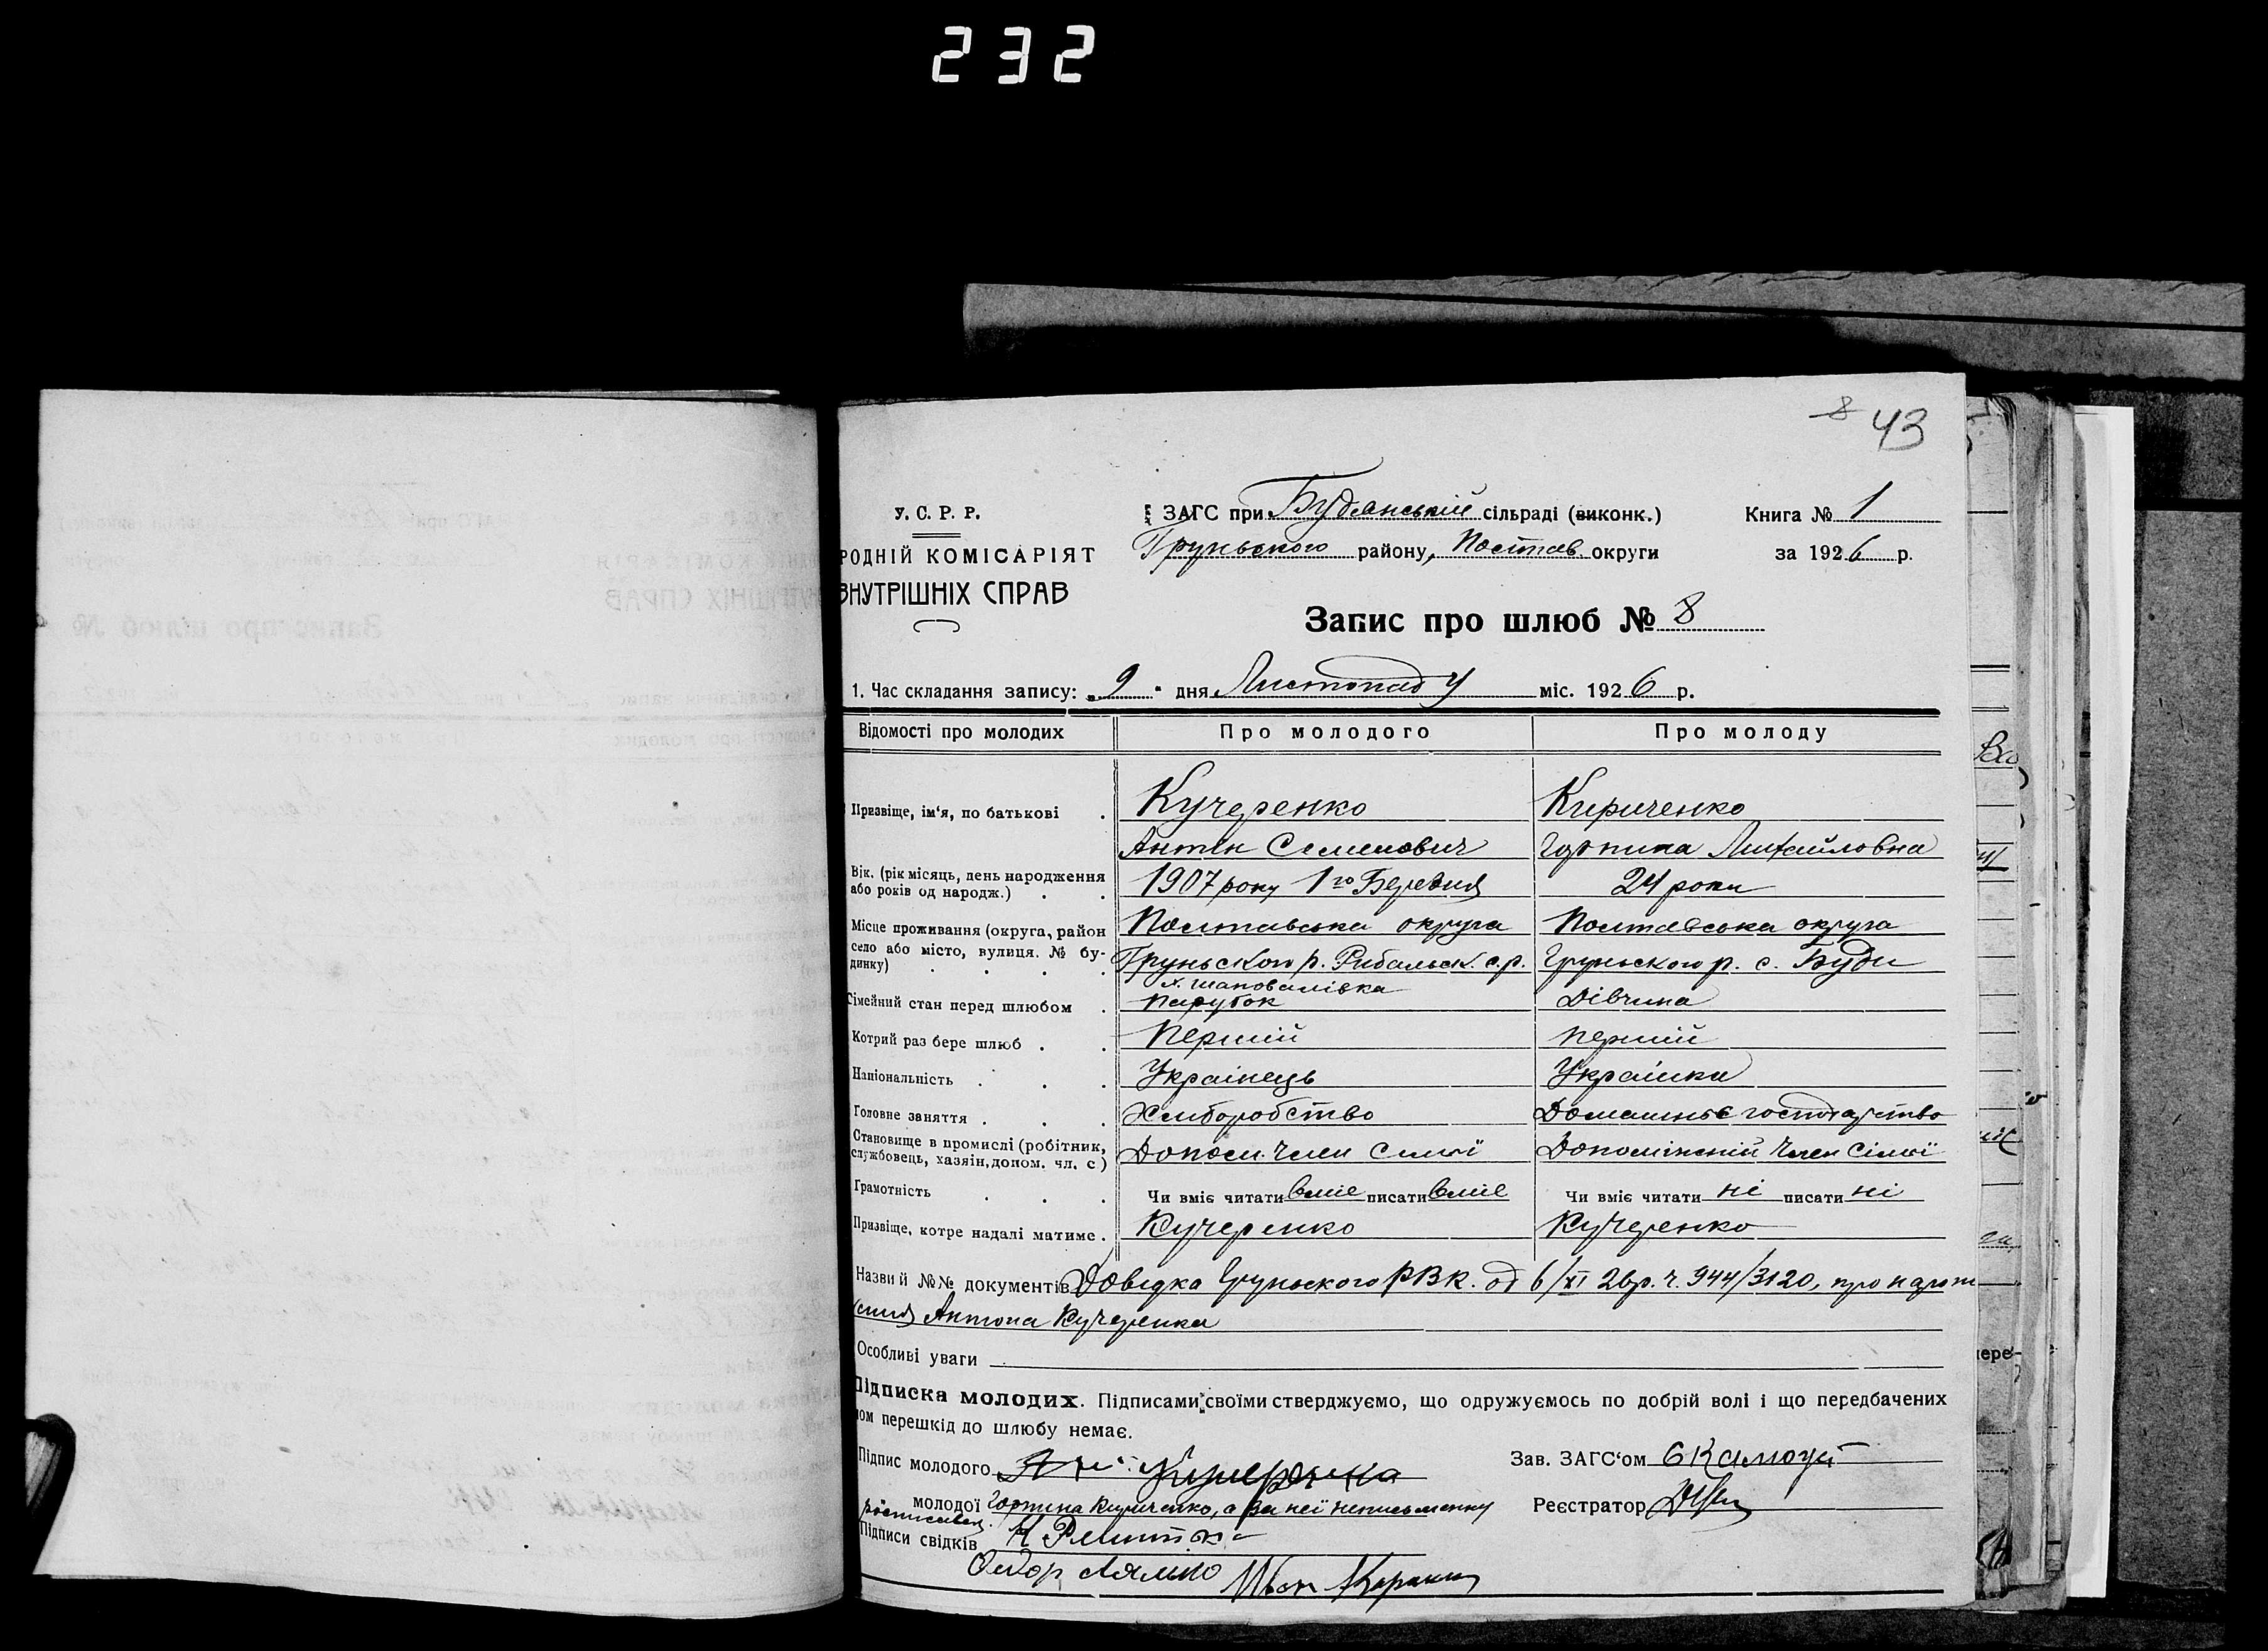 232
8 43
У. С. Р. Р.
РОДНІЙ КОМІСАРІЯТ
ВНУТРІШНІХ СПРАВ
ЗАГС при Будянській сільраді (виконк.)
Грунського району, Полтав округи
Книга № 1
за 1926 р.
Запис про шлюб № 8
1. Час складання запису: „9" дня Листопаду міс. 1926 р.
Відомості про молодих Про молодого Про молоду
Призвіще, ім'я, по батькові . Кучеренко Кириченко
Антін Семенович Горпина Михайловна
Вік. (рік місяць, день народження або років од народж.) . . 1907 року 1го Березня 24 роки
Місце проживання (округа, район Полтавська округа Полтавська округа
село або місто, вулиця. № бу-динку) . . . . Грунського р. Рибальск. с.р. Грунського р. с. Буди
х. Шаповалівка
Сімейний стан перед шлюбом . парубок Дівчина
Котрий раз бере шлюб . . Перший перший
Національність . . . Українець Українка
Головне заняття . . . Хліборобство Домашнье господарство
Становище в промислі (робітник, службовець, хазяін, допом. чл. с) Допом. член сімї Допоміжний член сімї
Грамотність . . . Чи вміє читати вміє писати вміє Чи вміє читати ні писати ні
Призвіще, котре надалі матиме . Кучеренко Кучеренко
Назви й №№ документів Довідка Грунського РВК. од 6/XI 26р. ч. 944/3120, про
Антона Кучеренка
Особливі уваги
Підписка молодих. Підписами своїми стверджуємо, що одружуємось по добрій волі і що передбачених
ом перешкід до шлюбу немає.
Підпис молодого Кучеренко
Зав. ЗАГС'ом
молодої Горпина Кириченко, а за неї неписьменну
Реєстратор
росписався
Підписи свідків
Федор Лялько Иван